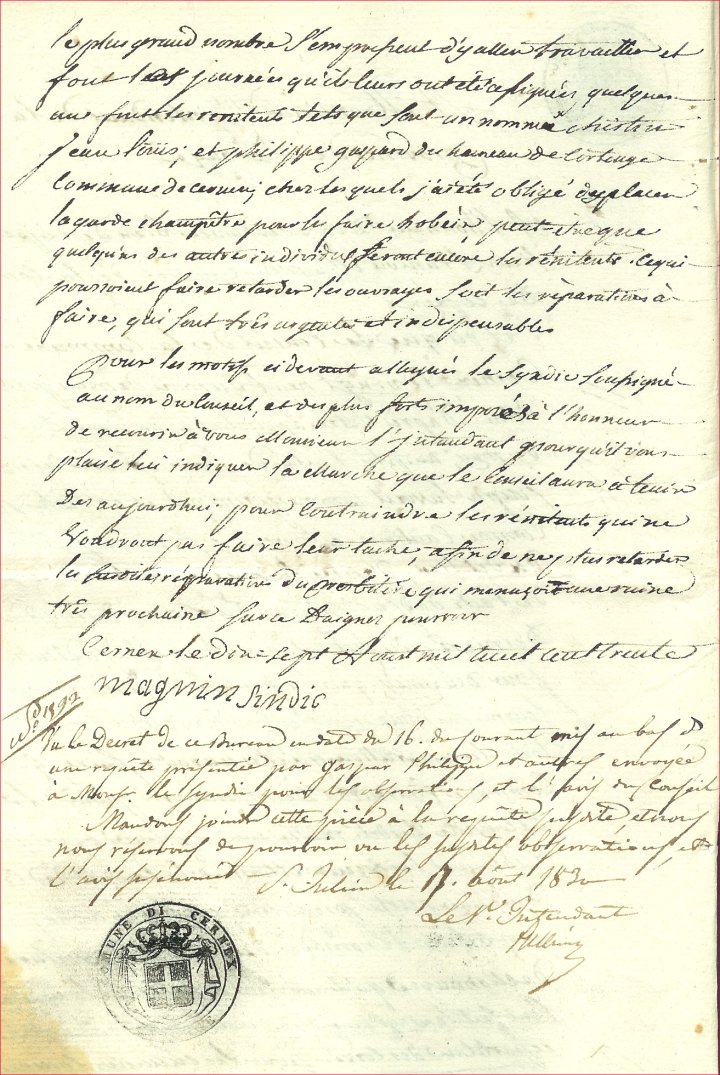 le plus grand nombre s'empressent d'y aller travailler et
font les journées qu'ils leurs ont été assignées quelques
uns font les rénitents tels que sont un nommé christin
jean louis; et philippe gaspard du hameau de
Commune de cernex; chez lesquels j'ai été obligé de placer
la garde champêtre pour les faire hobéir peut-être que
quelqu'uns des autres individus feront encore les rénitents. Ce qui
pourroient faire retarder les ouvrages soit les réparations à
faire, qui sont très urgentes et indispensables
Pour les motifs ci devant allegués le Syndic Soussigné
au nom du Conseil, et des plus forts imposés à l'honneur
de recourir à vous Monsieur l'jntandant pourqu'il vous
plaise lui indiquer la Marche que le Conseil aura à tenir
Des aujourdhui; pour Contraindre les rénitents qui ne
Voudront pas faire leur tache, afin de ne plus retarder
les susdites réparations du presbitère qui menaçoit une ruine
très prochaine sur ce Daignez pourvoir
Cernex le dix-sept Aout mil huit cent trente
magnin sindic
N.° 1892
Vu le Decret de ce Bureau en date du 16. du courant mis au bas d
une requête présentée par Gaspar Philippe et autres envoyée
à Monsr le Syndic pour les observations, et l'avis du Conseil
Mandons joindre cette pièce à la requête susdite, et nous
nous réservons de pourvoir vu les susdites observations, et
l'avis St Julien le 17. août 1830
Le Intendant
COMUNE DI CERNEX